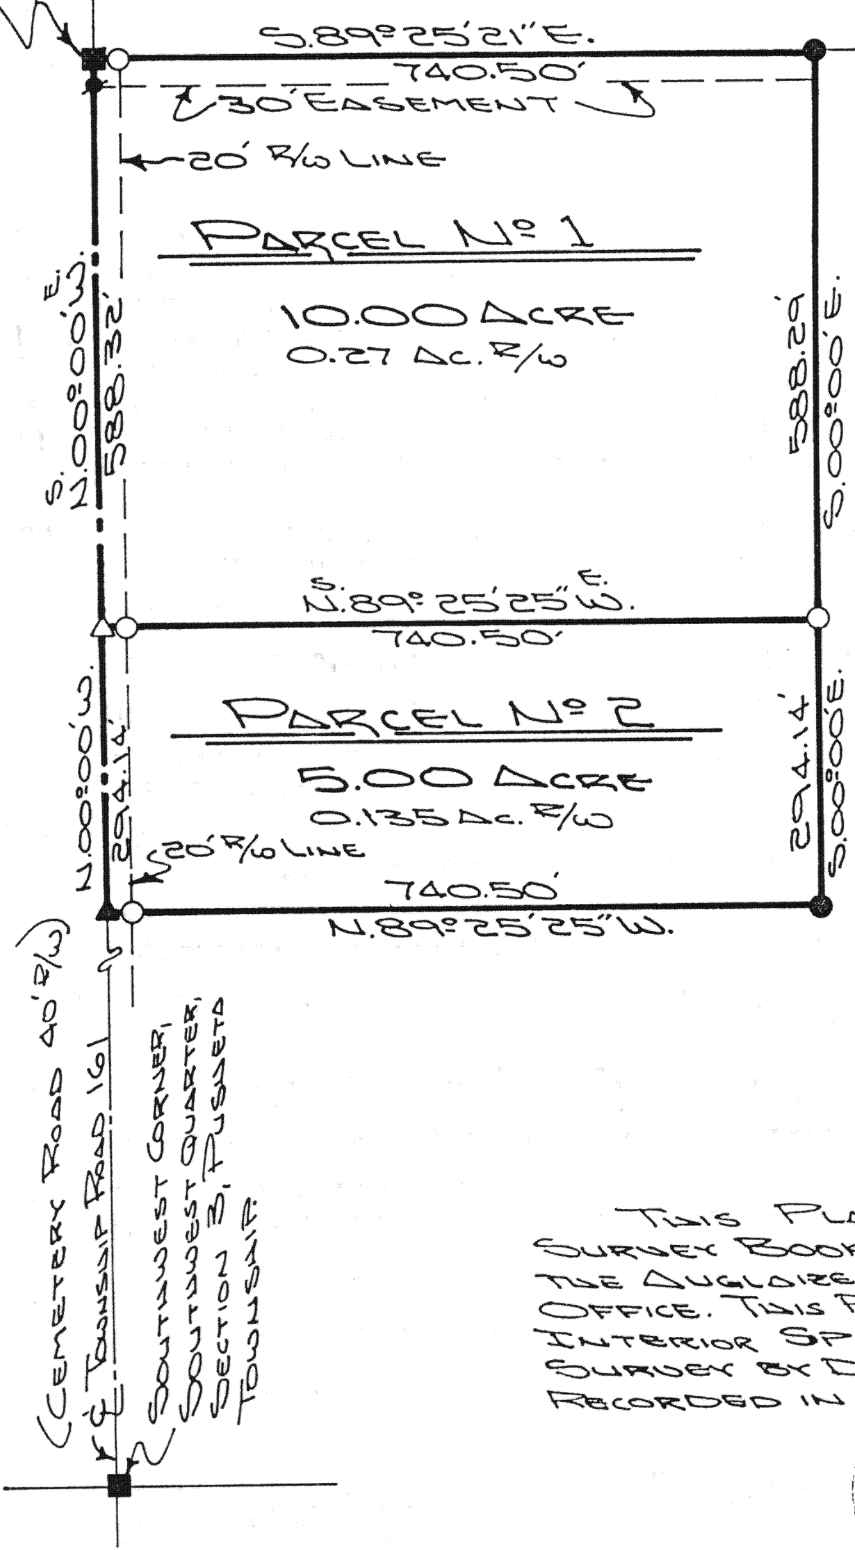 S.89º25'21"E.
740.50'
30' EASEMENT
20' R/W LINE
PARCEL Nº 1
10.00 ACRE
0.27 AC. R/W
S. E.
N.00º00'W.
588.32'
588.29'
S.00º00'E.
S. E.
N.89º25'25"W.
740.50'
PARCEL Nº 2
5.00 ACRE
0.135 AC. R/W
20' R/W LINE
N.00º00'W.
294.14'
294.14'
S.00º00'E.
740.50'
N.89º25'25"W.
(CEMETERY ROAD 40' R/W)
℄ TOWNSHIP ROAD 161
SOUTHWEST CORNER,
SOUTHWEST QUARTER,
SECTION 3, PUSHETA
TOWNSHIP.
THIS PLA
SURVEY BOOK
THE AUGLAIZE
OFFICE. THIS P
INTERIOR SP
SURVEY BY D
RECORDED IN